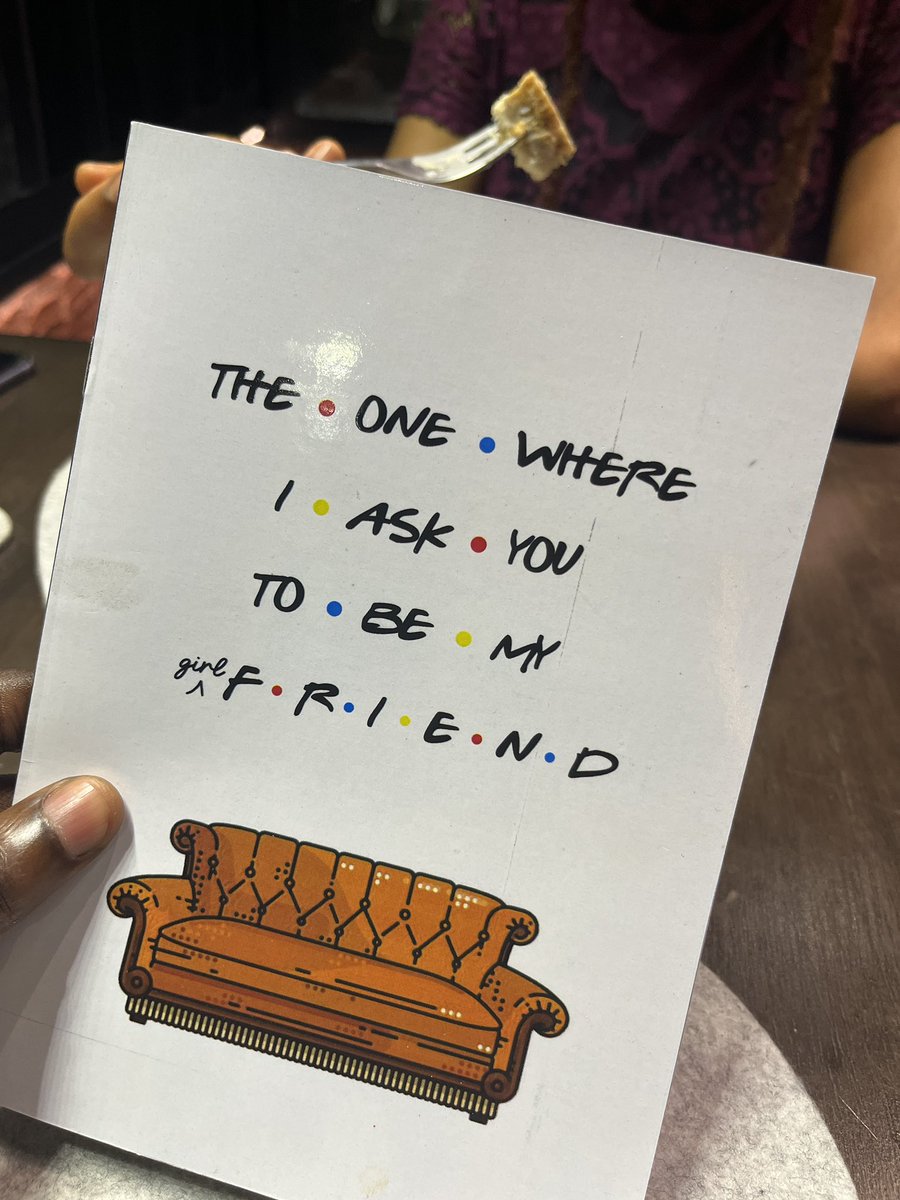 THE • ONE • WHERE
I • ASK • YOU
TO • BE • MY
girl F • R • I • E • N • D